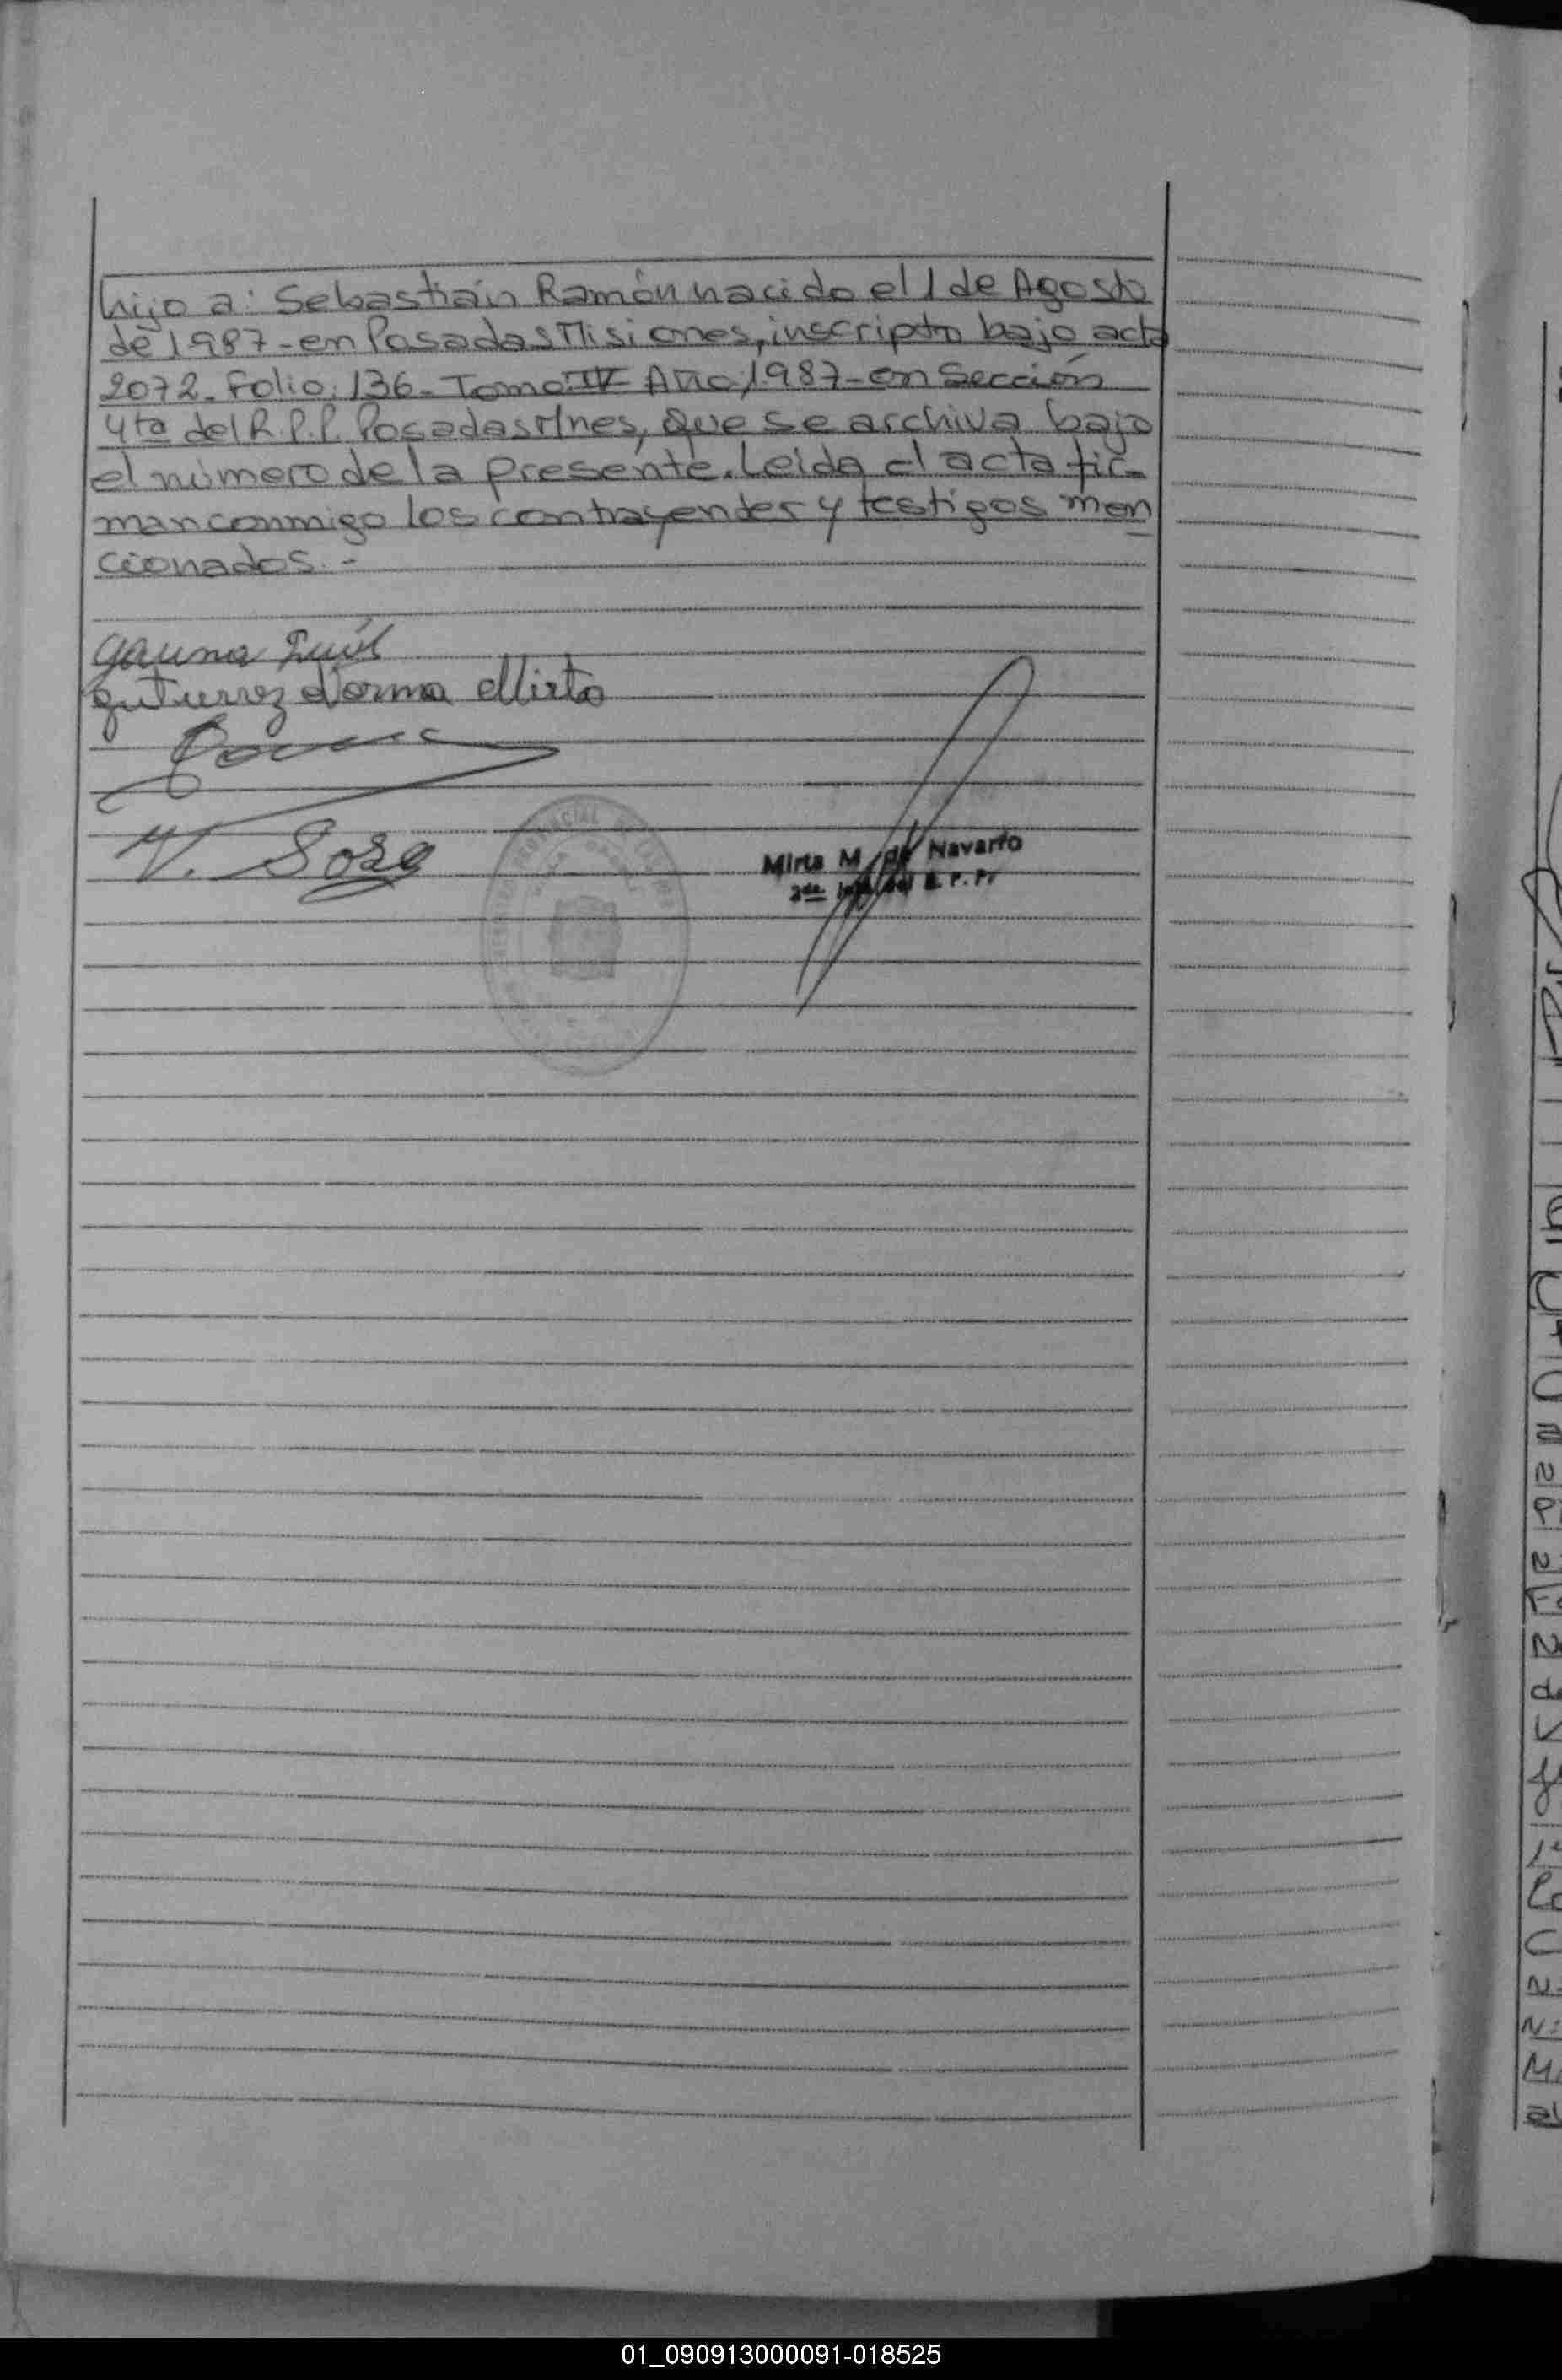 hijo a: Sebastián Ramón nacido el 1 de Agosto
de 1987-en Posadas Misiones, inscripto bajo acta
2072-Folio: 136-Tomo: IV Año, 1987-en Sección
4ta del R.P.P. Posadas Mnes, que se archiva bajo
el número de la presente. Leida el acta fir-
man conmigo los contrayentes y testigos men
cionados.-
Gauna
Gutierrez Norma Mirta
V. Sosa
Mirta M. de Navarro
R.P.P.
01_090913000091-018525